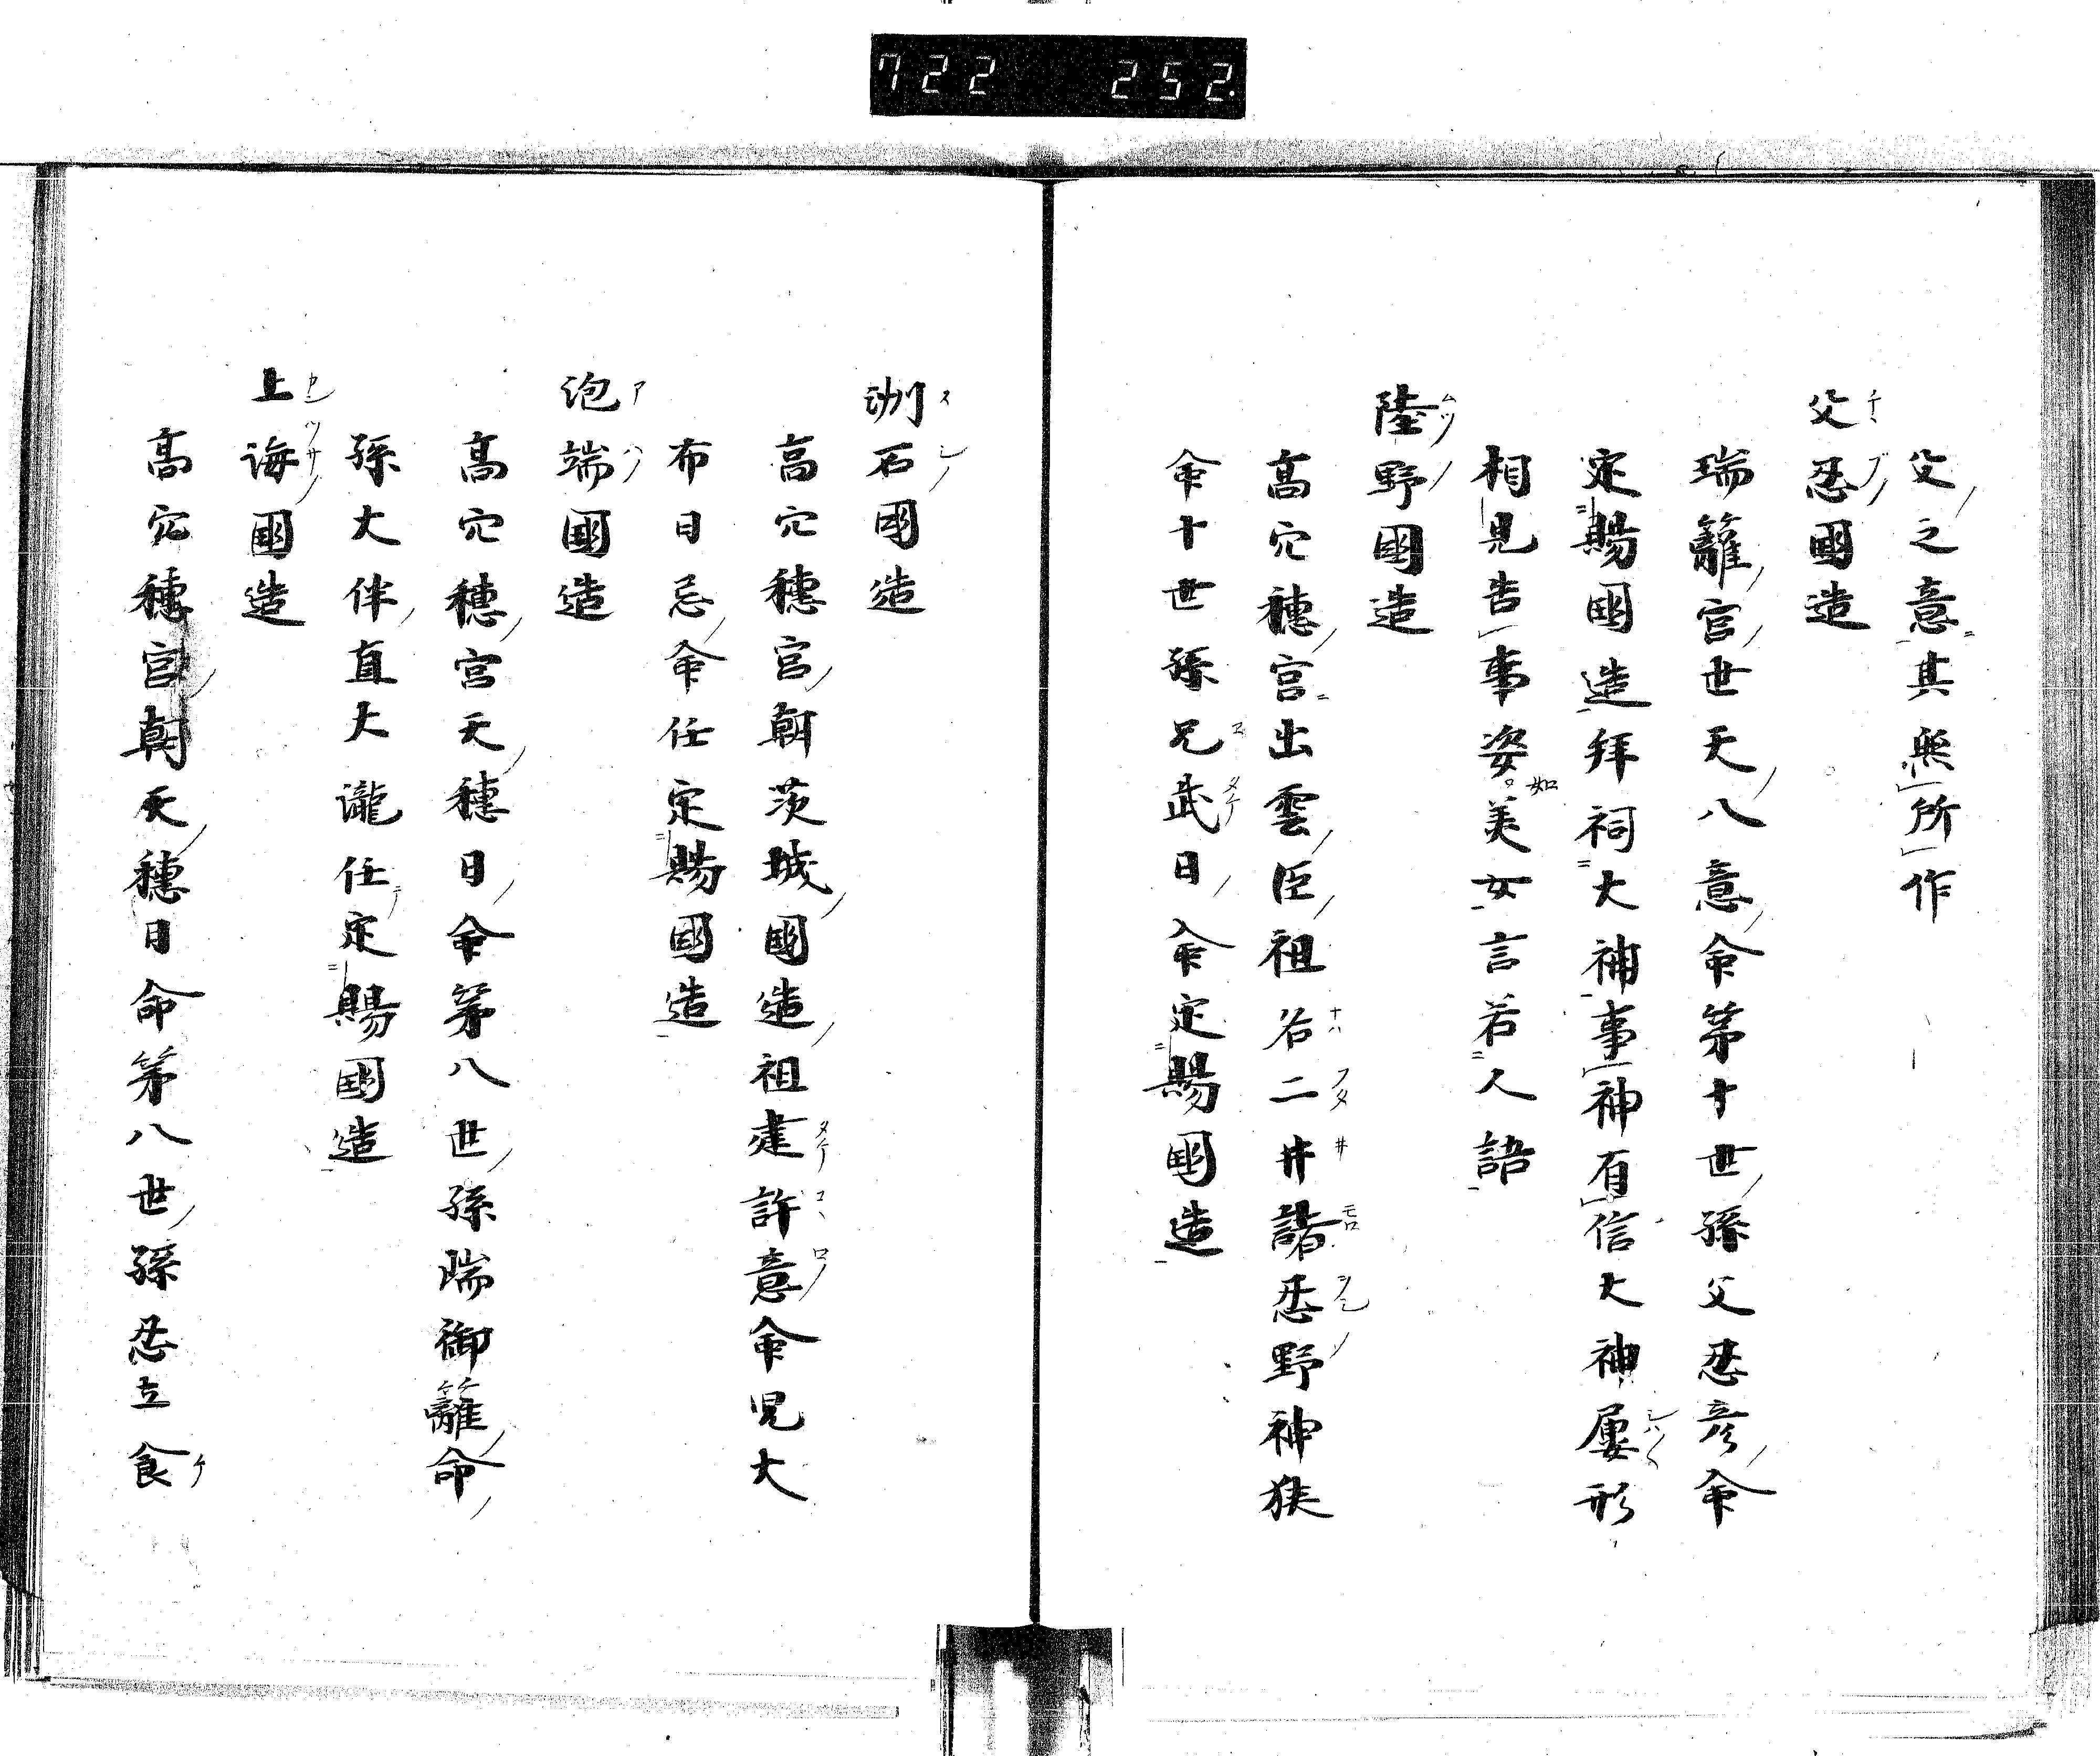 722 252.
父之意其無所作
父忍國造
瑞籬宮世天八意命第十世孫父忍彦命
定賜國造拜祠大神事神有信大神屢形
相見告事姿如美女言若人語
陸野國造
高穴穗宮出雲臣祖名二井諸忍野神狹
命十世孫兄武日命定賜國造
洲石國造
高穴穗宮朝茨城國造祖建許意命児大
布日忌命任定賜國造
泡端國造
高穴穗宮天穗日命第八世孫瑞御籬命
孫大伴直大瀧任定賜國造
上海國造
高穴穗宮朝天穗日命第八世孫忍立食